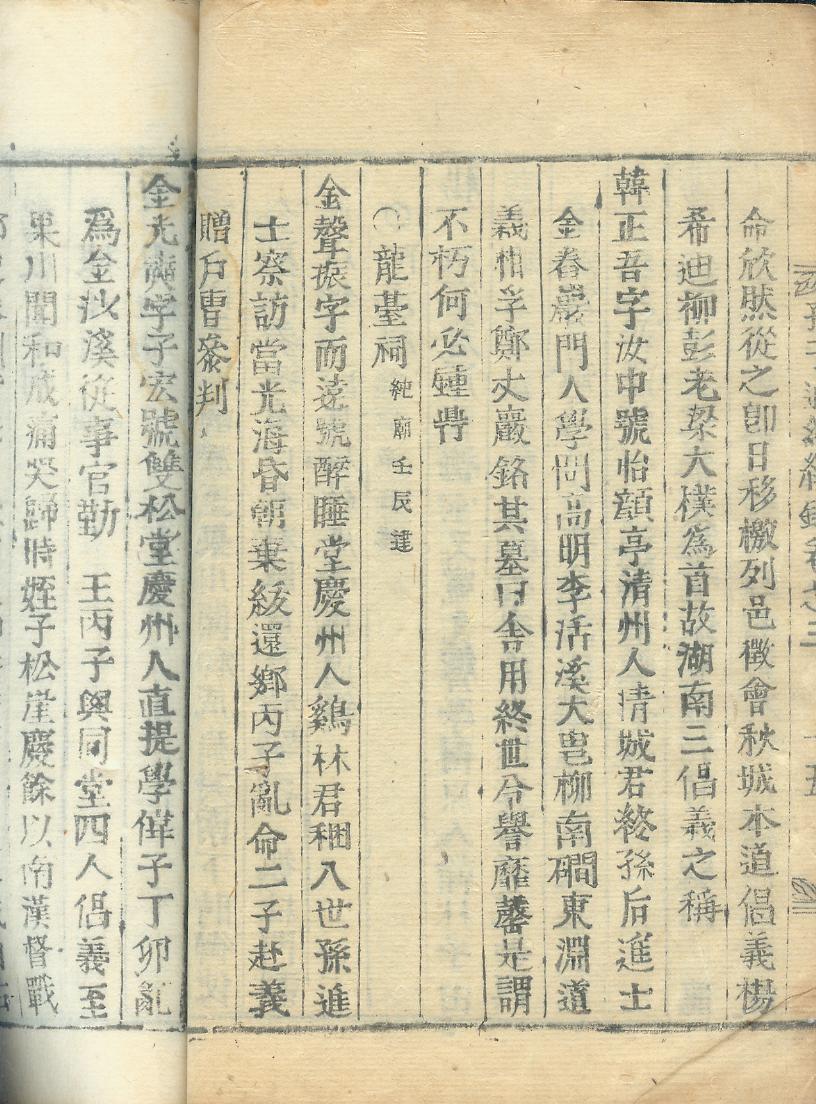 命欣然從之卽日移檄列邑徵會秋城本道倡義楊
希迪柳彭老梁大樸爲首故湖南三倡義之稱
韓正吾字汝中號怡顔亭淸州人淸城君終孫后進士
金春巖門人學問高明李活溪大㽕柳南磵東淵道
義相孚鄭丈巖銘其墓曰舍用終世令譽靡馨是謂
不朽何必鍾
〇龍臺祠 純廟壬辰建
金聲振字而遠號醉睡堂慶州人鷄林君稛八世孫進
士察訪當光海昏朝棄紱還鄉丙子亂命二子赴義
贈戶曹參判
金光 字子宏號雙松堂慶州人直提學偉子丁卯亂
爲金沙溪從事官勤 王丙子與同堂四人倡義至
果川聞和成痛哭歸時姪子松崖慶餘以南漢督戰